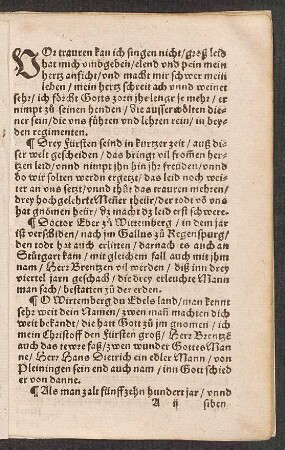 VOr trauren kan ich singen nicht/ groß leid
hat mich vmbgeben/ elend vnd pein mein
hertz anficht/ vnd macht mir schwer mein
leben / mein hertz schreit ach vnnd weinet
sehr/ ich förcht Gotts zorn jhe lenger je mehr / er
nimpt zů seinen henden / die ausserwölten die-
ner sein/ die vns führen vnd lehren rein/ in bey-
den regimenten.
¶ Drey Fürsten seind in kurtzer zeit / auß di-
ser welt gescheiden / das bringt vil frommen her-
tzen leid / vnnd nimpt jhn hin jhr freuden/ vnnd
do wir solten werdn ergetzt/ das leid noch wei-
ter an vns setzt/ vnnd thůt das trauren mehren/
drey hochgelehrte Meñer theür/ der todt võ vns
hat gnõmen heür/ dz macht dz leid erst schwere.
¶ Doctor Eber zů Wittemberg / in dem jar
ist verschiden / nach jm Gallus zů Regenspurg/
den todt hat auch erlitten / darnach es auch an
Stůtgart kam / mit gleichem fall auch mit jhm
nam / Herr Brentzen vil werden / diß inn drey
viertel jarn geschach/ die drey erleuchte Mann
man sach/ bestatten zů der erden.
¶ O Wirtemberg du Edels land/ man kennt
sehr weit dein Namen / zwen mañ machten dich
weit bekandt/ die hatt Gott zů jm gnomen / ich
mein Christoff den Fürsten groß/ Herr Brentzẽ
auch das tewre faß/ zwen wunder Gottes Man
ne/ Herr Hans Dietrich ein edler Mann / von
Pleiningen sein end auch nam / inn Gott schied
er von danne.
¶ Als man zalt fünffzehn hundert jar / vnnd
A ij siben